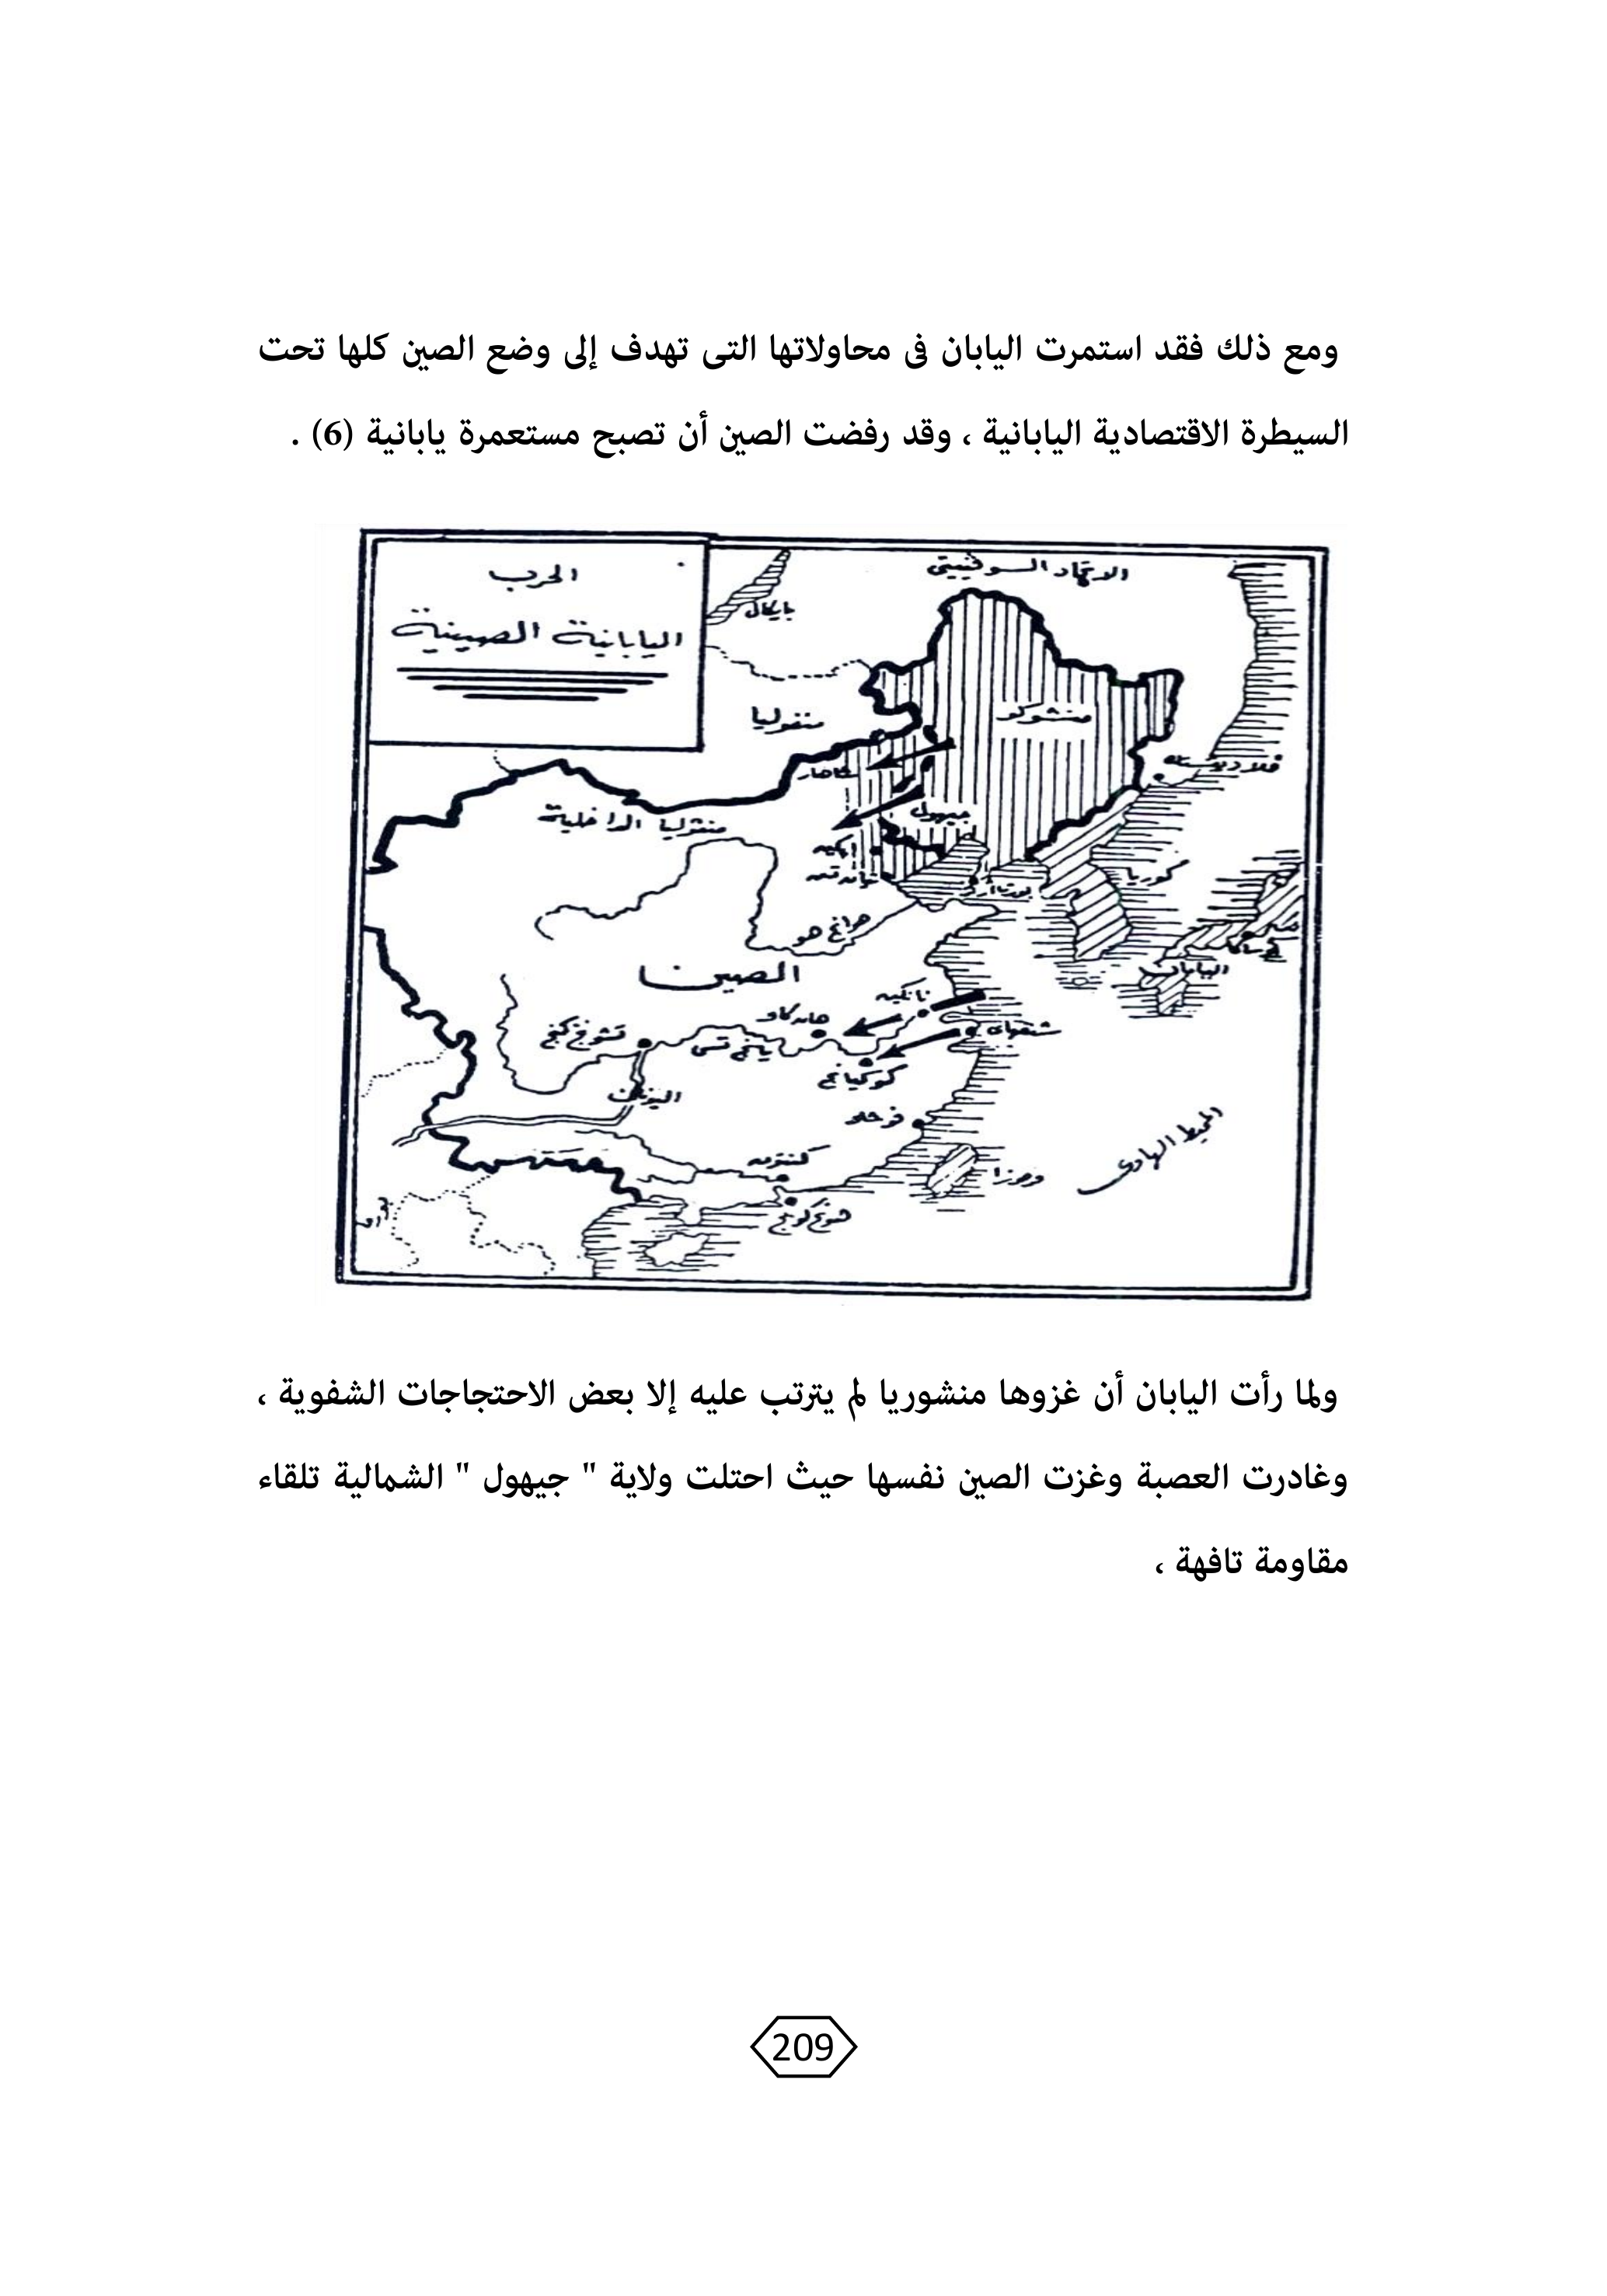 ومع ذلك فقد استمرت اليابان فى محاولاتها التى تهدف إلى وضع الصين كلها تحت
السيطرة الاقتصادية اليابانية ، وقد رفضت الصين أن تصبح مستعمرة يابانية (6) .
الحرب
اليابانية الصينية
الاتحاد السوفييتى
بايكال
منشوكو
منغوليا
جيهول
منغوليا الداخلية
كوريا
هوانج هو
الصين
اليابان
نانكين
شنغهاى
يانج تسى
المحيط الهادى
هونج كونج
ولما رأت اليابان أن غزوها منشوريا لم يترتب عليه إلا بعض الاحتجاجات الشفوية ،
وغادرت العصبة وغزت الصين نفسها حيث احتلت ولاية " جيهول " الشمالية تلقاء
مقاومة تافهة ،
209